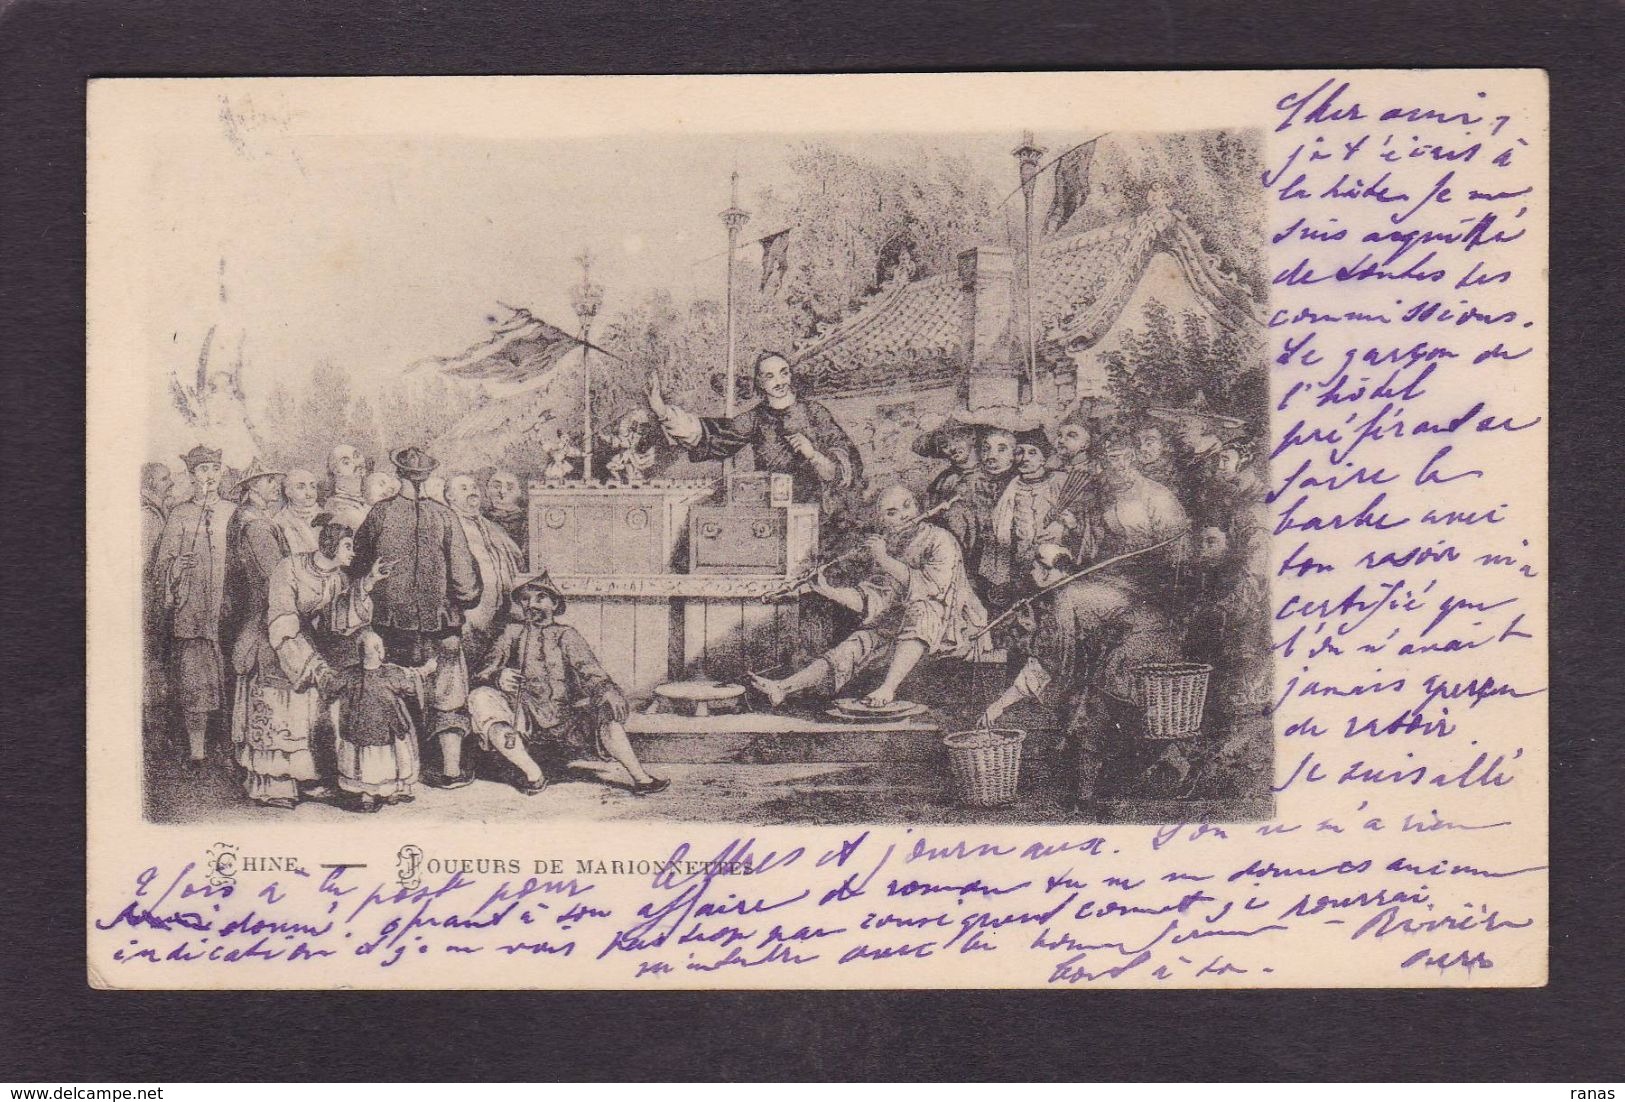 Cher ami,
je t'écris à
la hâte. Je me
suis acquitté
de toutes tes
commissions.
Le garçon de
l'hôtel
préférant se
faire la
barbe avec
ton rasoir m'a
certifié que
l'on n'avait
jamais aperçu
de rasoir.
Je suis allé
CHINE. — JOUEURS DE MARIONNETTES
2 fois à la poste pour lettres et journaux. L'on ne m'a rien
donné. Quant à ton affaire de roman tu ne me donnes aucune
indication et je ne vois pas trop par conséquent comment je pourrai
m'entendre avec la bonne femme — Rivière
tout à toi.